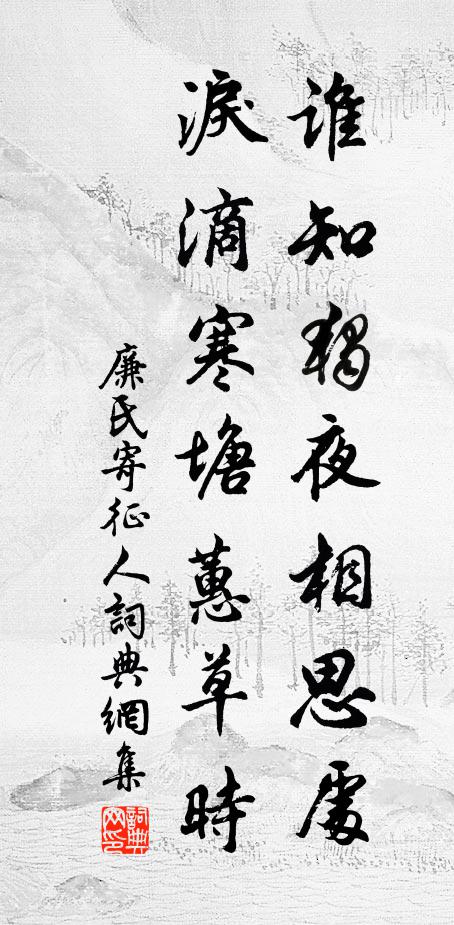 誰知獨夜相思處
淚滴寒塘蕙草時
廉氏寄征人詞典網集
詞典網印